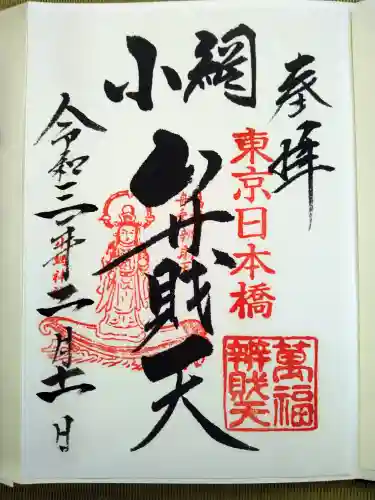 奉拝
東京日本橋
萬福
辨財天
小網
弁財天
令和三年二月十一日